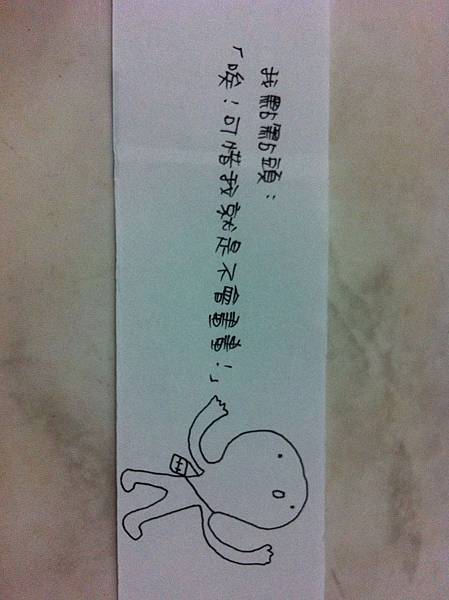 我點點頭:
「唉!可惜我就是不會畫畫!」